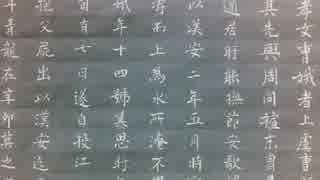 孝女曹娥者上虞曹
其先與周同祖末胄
適居盱能撫節安歌
以漢安二年五月時
濤而上為水所淹不
娥年十四號慕思盱
旬有七日遂自投江
抱父屍出以漢安迄
年青龍在辛卯莫之